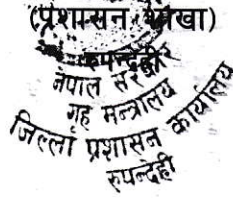 (प्रशासन शाखा)
रुपन्देही
नेपाल सरकार
गृह मन्त्रालय
जिल्ला प्रशासन कार्यालय
रुपन्देही